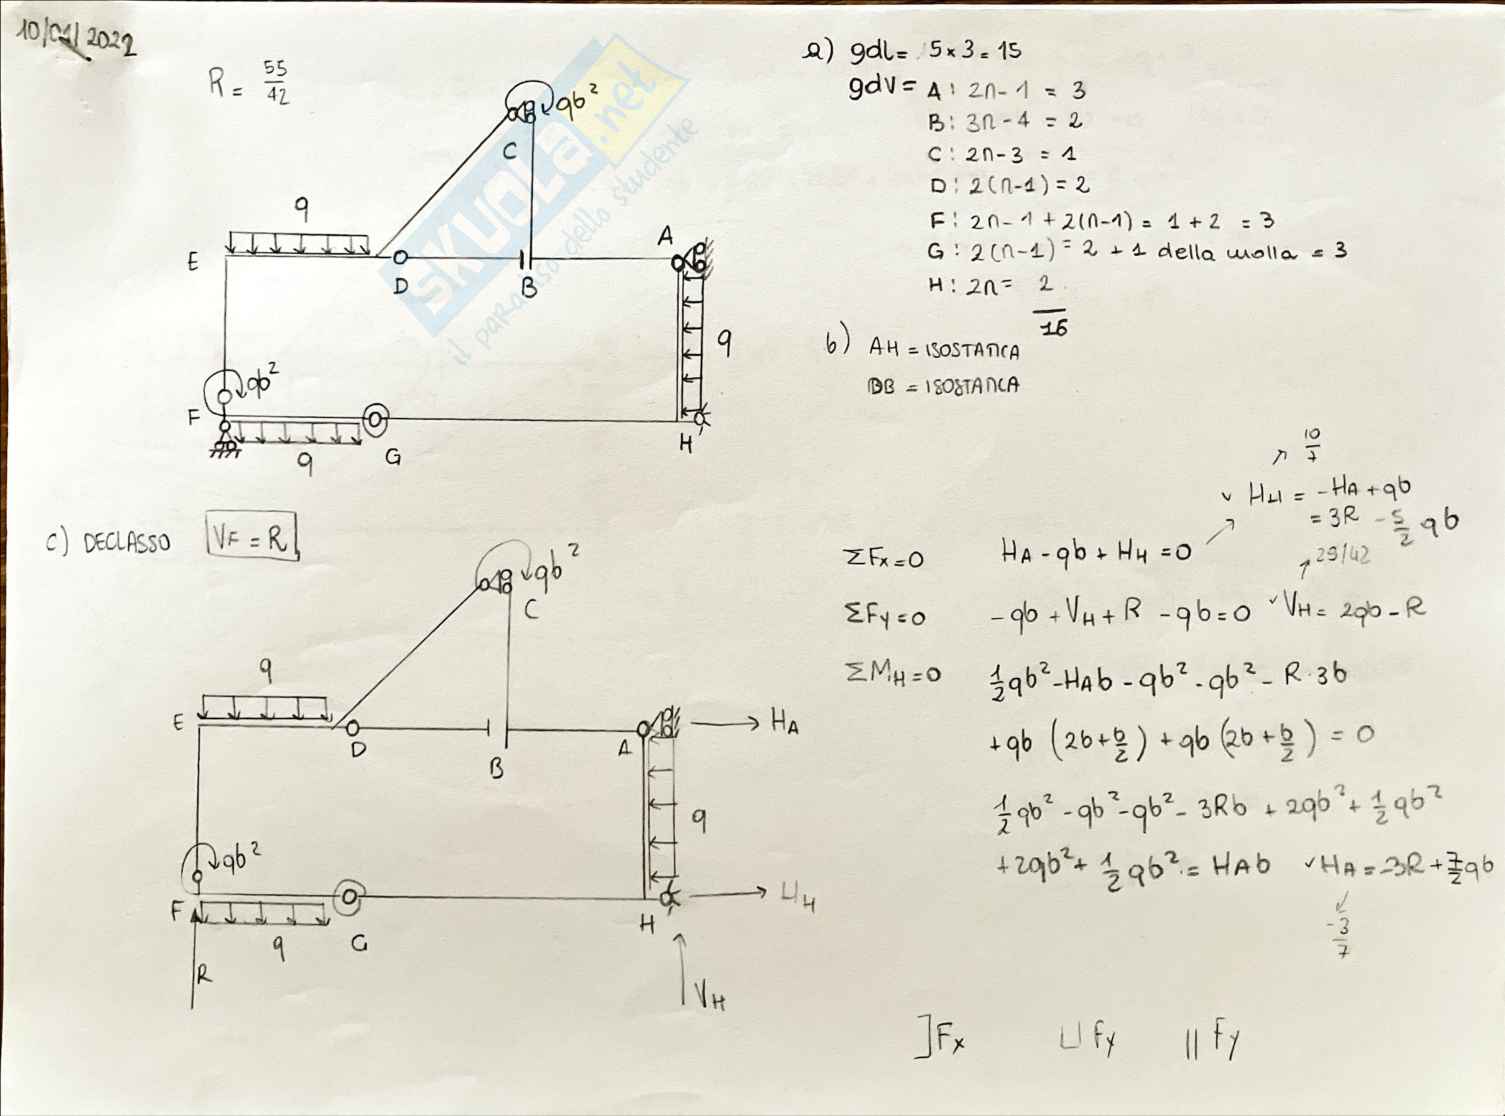 10/01/2022
R = 55/42
qb²
C
q
E
D
B
A
q
qb²
F
G
H
q
a) gdl = 5×3 = 15
gdv = A: 2n-1 = 3
B: 3n-4 = 2
C: 2n-3 = 1
D: 2(n-1) = 2
F: 2n-1+2(n-1) = 1+2 = 3
G: 2(n-1) = 2 + 1 della molla = 3
H: 2n = 2
16
b) AH = ISOSTATICA
DB = ISOSTATICA
SKUOLA.net
il paradiso dello studente
c) DECLASSO VF = R
qb²
C
q
E
D
B
A
HA
q
qb²
F
G
H
HH
q
R
VH
10/7
HH = -HA + qb
= 3R - 5/2 qb
ΣFx=0 HA - qb + HH = 0
29/42
ΣFy=0 -qb + VH + R - qb = 0 VH = 2qb - R
ΣMH=0 1/2 qb² - HAb - qb² - qb² - R·3b
+ qb (2b + b/2) + qb (2b + b/2) = 0
1/2 qb² - qb² - qb² - 3Rb + 2qb² + 1/2 qb²
+ 2qb² + 1/2 qb² = HAb HA = -3R + 7/2 qb
-3/7
]Fx ⊔ Fy || Fy